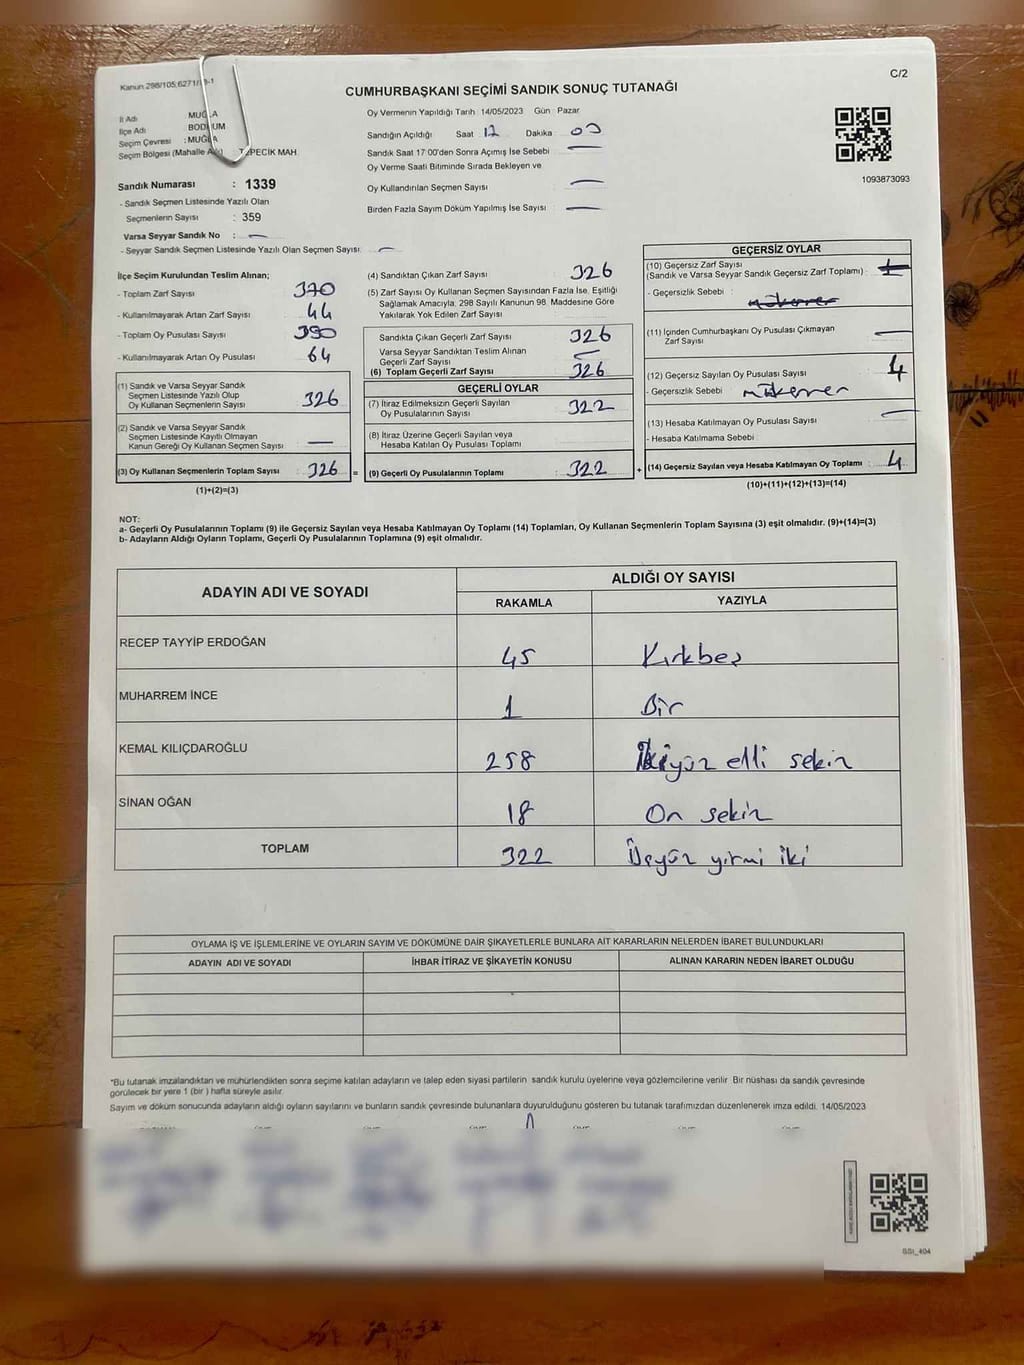 Kanun 298/105;6271/
C/2
CUMHURBAŞKANI SEÇİMİ SANDIK SONUÇ TUTANAĞI
İl Adı MUĞLA
İlçe Adı BODRUM
Seçim Çevresi : MUĞLA
Seçim Bölgesi (Mahalle Adı) TEPECİK MAH.
Oy Vermenin Yapıldığı Tarih : 14/05/2023 Gün : Pazar
Sandığın Açıldığı Saat 17 Dakika 00
Sandık Saat 17:00'den Sonra Açımış İse Sebebi —
Oy Verme Saati Bitiminde Sırada Bekleyen ve
Oy Kullandırılan Seçmen Sayısı —
Birden Fazla Sayım Döküm Yapılmış İse Sayısı —
1093873093
Sandık Numarası : 1339
- Sandık Seçmen Listesinde Yazılı Olan
Seçmenlerin Sayısı : 359
Varsa Seyyar Sandık No : —
- Seyyar Sandık Seçmen Listesinde Yazılı Olan Seçmen Sayısı: —
İlçe Seçim Kurulundan Teslim Alınan;
- Toplam Zarf Sayısı 370
- Kullanılmayarak Artan Zarf Sayısı : 44
- Toplam Oy Pusulası Sayısı 390
- Kullanılmayarak Artan Oy Pusulası 64
(1) Sandık ve Varsa Seyyar Sandık
Seçmen Listesinde Yazılı Olup
Oy Kullanan Seçmenlerin Sayısı 326
(2) Sandık ve Varsa Seyyar Sandık
Seçmen Listesinde Kayıtlı Olmayan
Kanun Gereği Oy Kullanan Seçmen Sayısı —
(3) Oy Kullanan Seçmenlerin Toplam Sayısı 326 =
(1)+(2)=(3)
(4) Sandıktan Çıkan Zarf Sayısı 326
(5) Zarf Sayısı Oy Kullanan Seçmen Sayısından Fazla İse, Eşitliği
Sağlamak Amacıyla, 298 Sayılı Kanunun 98. Maddesine Göre
Yakılarak Yok Edilen Zarf Sayısı
Sandıkta Çıkan Geçerli Zarf Sayısı 326
Varsa Seyyar Sandıktan Teslim Alınan
Geçerli Zarf Sayısı —
(6) Toplam Geçerli Zarf Sayısı 326
GEÇERLİ OYLAR
(7) İtiraz Edilmeksizin Geçerli Sayılan
Oy Pusulalarının Sayısı 322
(8) İtiraz Üzerine Geçerli Sayılan veya
Hesaba Katılan Oy Pusulası Toplamı
(9) Geçerli Oy Pusulalarının Toplamı : 322 +
GEÇERSİZ OYLAR
(10) Geçersiz Zarf Sayısı
(Sandık ve Varsa Seyyar Sandık Geçersiz Zarf Toplamı) :
- Geçersizlik Sebebi : mükerrer
(11) İçinden Cumhurbaşkanı Oy Pusulası Çıkmayan
Zarf Sayısı —
(12) Geçersiz Sayılan Oy Pusulası Sayısı 4
- Geçersizlik Sebebi : mükerrer
(13) Hesaba Katılmayan Oy Pusulası Sayısı —
- Hesaba Katılmama Sebebi
(14) Geçersiz Sayılan veya Hesaba Katılmayan Oy Toplamı : 4
(10)+(11)+(12)+(13)=(14)
NOT:
a- Geçerli Oy Pusulalarının Toplamı (9) ile Geçersiz Sayılan veya Hesaba Katılmayan Oy Toplamı (14) Toplamları, Oy Kullanan Seçmenlerin Toplam Sayısına (3) eşit olmalıdır. (9)+(14)=(3)
b- Adayların Aldığı Oyların Toplamı, Geçerli Oy Pusulalarının Toplamına (9) eşit olmalıdır.
ADAYIN ADI VE SOYADI
ALDIĞI OY SAYISI
RAKAMLA YAZIYLA
RECEP TAYYİP ERDOĞAN 45 Kırkbeş
MUHARREM İNCE 1 Bir
KEMAL KILIÇDAROĞLU 258 İkiyüz elli sekiz
SİNAN OĞAN 18 On sekiz
TOPLAM 322 Üçyüz yirmi iki
OYLAMA İŞ VE İŞLEMLERİNE VE OYLARIN SAYIM VE DÖKÜMÜNE DAİR ŞİKAYETLERLE BUNLARA AİT KARARLARIN NELERDEN İBARET BULUNDUKLARI
ADAYIN ADI VE SOYADI İHBAR İTİRAZ VE ŞİKAYETİN KONUSU ALINAN KARARIN NEDEN İBARET OLDUĞU
*Bu tutanak imzalandıktan ve mühürlendikten sonra seçime katılan adayların ve talep eden siyasi partilerin sandık kurulu üyelerine veya gözlemcilerine verilir. Bir nüshası da sandık çevresinde
görülecek bir yere 1 (bir ) hafta süreyle asılır.
Sayım ve döküm sonucunda adayların aldığı oyların sayılarını ve bunların sandık çevresinde bulunanlara duyurulduğunu gösteren bu tutanak tarafımızdan düzenlenerek imza edildi. 14/05/2023
SSI_404